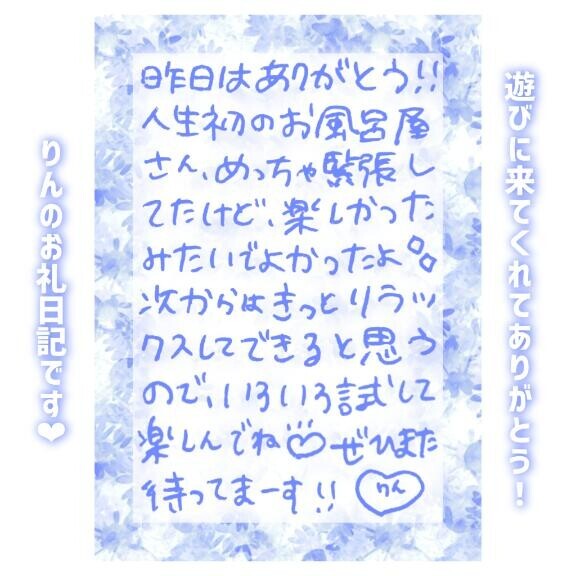 遊びに来てくれてありがとう！
昨日はありがとう!!
人生初のお風呂屋
さん、めっちゃ緊張し
てたけど、楽しかった
みたいでよかったよ
次からはきっとリラッ
クスしてできると思う
ので、いろいろ試して
楽しんでね♡ ぜひまた
待ってまーす!!
りん
りんのお礼日記です❤